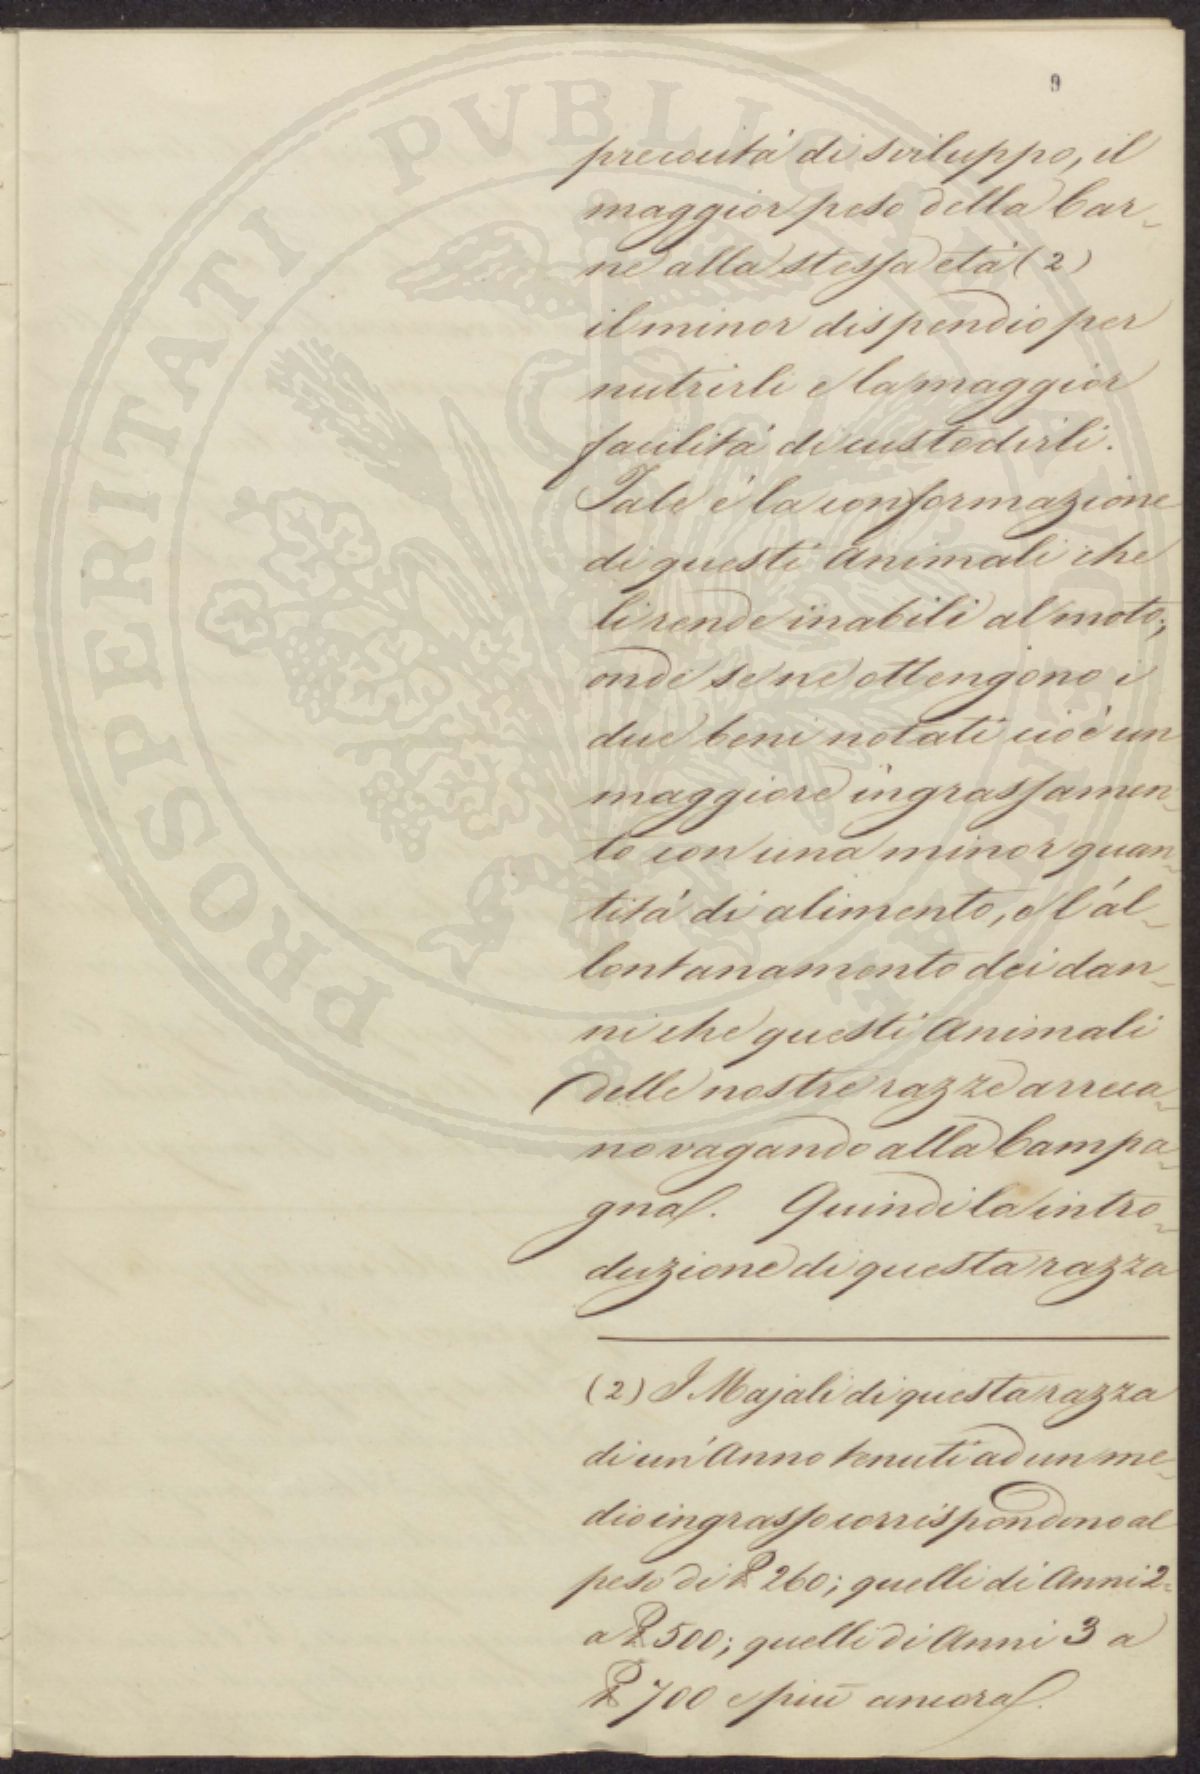 9
precocità di sviluppo, il
maggior peso della Car-
ne alla stessa età (2)
il minor dispendio per
nutrirli e la maggior
facilità di custodirli.
Tale è la conformazione
di questi Animali che
li rende inabili al moto;
onde se ne ottengono i
due beni notati cioè un
maggiore ingrassamen-
to con una minor quan-
tità di alimento, e l'al-
lontanamento dei dan-
ni che questi Animali
delle nostre razze arreca-
no vagando alla Campa-
gna. Quindi la intro-
duzione di questa razza
(2) I Majali di questa razza
di un'Anno tenuti ad un me-
dio ingrasso corrispondono al
peso di ℔ 260; quelli di Anni 2
a ℔ 500; quelli di Anni 3 a
℔ 700 e più ancora.
PROSPERITATI PUBLICAE